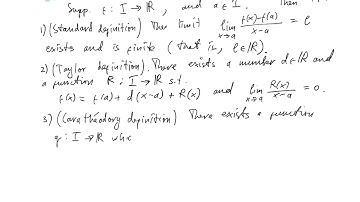 Supp. f: I → ℝ, and a ∈ I. Then
1) (Standard definition) The limit lim x→a f(x)-f(a) / x-a = ℓ
exists and is finite (that is, ℓ∈ℝ).
2) (Taylor definition). There exists a number d∈ℝ and
a function R: I → ℝ s.t.
f(x) = f(a) + d(x-a) + R(x) and lim x→a R(x) / x-a = 0.
3) (Caratheodory definition) There exists a function
φ: I → ℝ